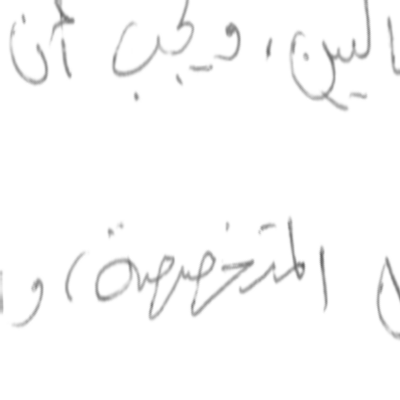 الين، ويجب أن
المتخصصة، و